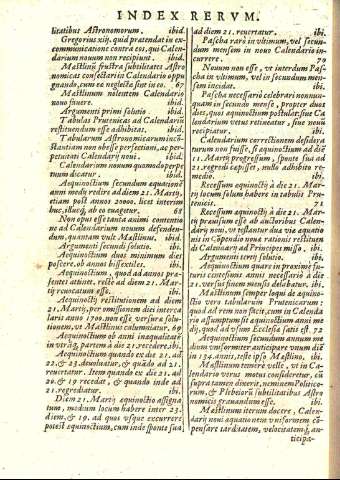 INDEX RERVM.
litatibus Astronomorum. ibid.
Gregorius xiij. quid pratendat in ex-
communicatione contra eos, qui Calen-
darium nouum non recipiunt. ibid.
Mæstlinũ frustra subtilitates Astro
nomicas consectari in Calendario oppu
gnando, cum eæ neglectæ sint in eo. 67
Mæstlinum nolentem Calendario
nouo fauere. ibid.
Argumenti primi solutio ibid.
Tabulas Prutenicas ad Calendarij
restituendum esse adhibitas. ibid.
Tabularum Astronomicarum incon-
stantiam non obesse perfectioni, ac per-
petuitati Calendarij noui. ibid.
Calendarium nouum quomodo perpe
tuum dicatur. ibid.
Aequinoctium secundum equatione
anni medij redire ad diem 21. Martij,
etiam post annos 20000. licet interim
hinc, illucq́, ab eo euagetur. 68
Non opus esse tanta animi contentio
ne ad Calendarium nouum defenden-
dum, quantam vult Mæstlinus. ibid.
Argumenti secundi solutio. ib.
Aequinoctium duos minimum dies
posserre, ob annos bissextiles. ib.
Aequinoctium, quod ad annos præ-
sentes attinet, recte ad diem 21. Mar-
tij reuocatum esse. ibi.
Aequinoctij restitutionem ad diem
21. Martij, per omissionem diei interca
laris anno 1700. non esse versuræ solu-
tionem, vt Mæstlinus calumniatur. 69
Aequinoctium ob anni inæqualitate
in vtrāq, partem a die 21. recedere. ib.
Aequinoctium quando ex die 21. ad
22. & 23. diuulsatur, & quādo ad 21.
reuertatur. Item quando ex die 21. ad
20. & 19 recedat, & quando inde ad
21. regrediatur. ibi.
Diem 21. Martij equinoctio assigna
tum, medium locum habere inter 23.
diem, & 19. ad quos vsque excurrere
potest equinoctium, cum inde sponte sua
ad diem 21. reuertatur. ibi.
Pascha raro in vltimum, vel secun
dum mensem in nouo Calendario in-
currere. 70
Nouum non esse, vt interdum Pas-
cha in vltimum, vel in secundum men-
sem incidat. ibi.
Pascha necessario celebrari nonnun-
quam in secundo mense, propter duos
dies, quos equinoctium postulat, siue Ca
lendarium vetus retineatur, siue nouũ
recipiatur. ibi.
Calendarium correctionem desidera
turum non fuisse, si æquinoctium ad diē
11. Martij progressum, sponte sua ad
21. regredi cœpisset, nullo adhibito re-
medio. ibi.
Recessum equinoctij à die 21. Mar-
tij locum solum habere in tabulis Pru-
tenicis. 71
Recessum equinoctij à die 21. Mar-
tij præuisum esse ab auctoribus Calen-
darij noui, vt testantur duæ viæ æquatio
nis in Copendio noua rationis restituen
di Calendarij ad Principes misso. ibi.
Argumenti tertij solutio. ibi.
Aequinoctium quare in proxime fu-
turis ducentis annis necessariò à die
21. versus finem mensis delabatur. ibi.
Mæstlinum semper loqui de equino-
ctio vero tabularum Prutenicarum:
quod ad rem non facit, cum in Calenda
rio assumptum sit æquinoctium anni me
dij, quod ad vsum Ecclesiæ satis est. 72
Aequinoctium secundum annum me
dium vniformiter anticipare vnum diē
in 134. annis, teste ipso Mæstlino. ibi.
Mæstlinum temere velle, vt in Ca-
lendario verus motus consideretur, cũ
supra tamen dixerit, neminem Politico-
rum, & Plebeiorũ subtilitatibus Astro
nomicis grauandum esse. ibi.
Mæstlinum iterum docere, Calen-
darij noui æquationem vniformem com
pensare tarditatem, velocitatemq́, an-
ticipa-